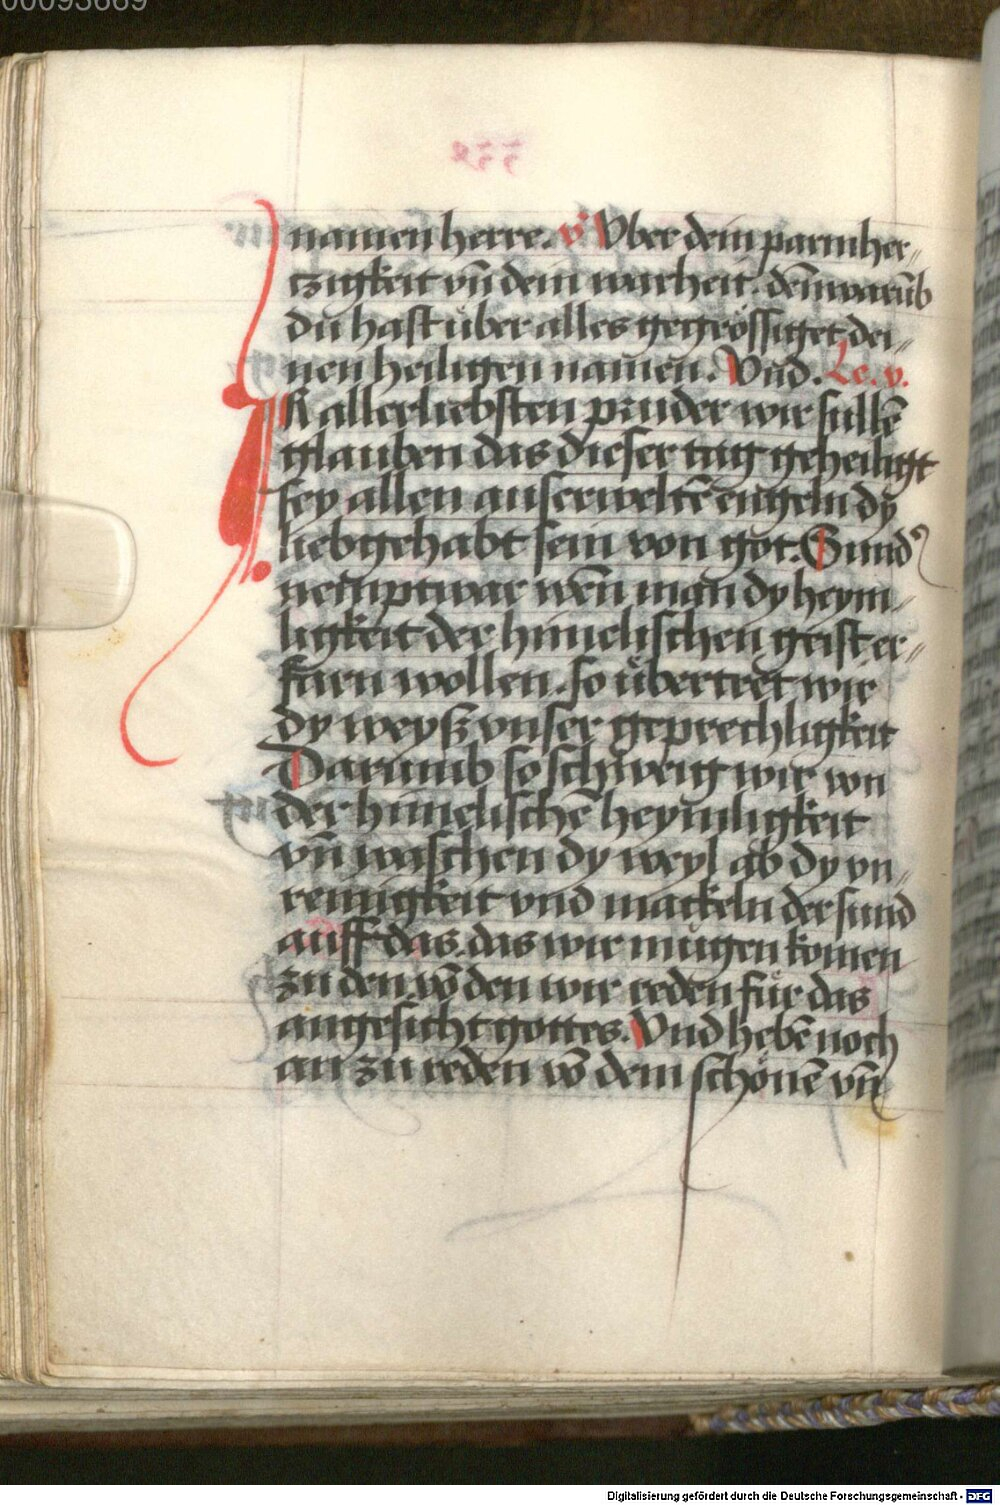 00093669
namen herre. v̕ Vber dein parmher„
tzigkeit vn̄ dein warheit. deñ warūb
du hast über alles gegrössiget dei„
nen heiligen namen. Vnd. Le. v.
IR allerliebsten pruder wir sullē
glauben das dieser tag geheiligt
sey allen auserweltē engeln dy
liebgehabt sein von got. Sund̕
nempt war wen̄ man dy heym„
ligkeit der himelischen geist er„
farn wollen. so übertret wir
dy weyß vnser geprechligkeit
Darumb so schweig wir von
der himelischē heymligkeit
vn̄ waschen dy weyl ab dy vn„
reinigkeit vnd mackeln der sund
auff das. das wir mügen komen
zu den vō den wir reden für das
angesicht gottes. Vnd hebē noch
an zu reden vō dem schönē vn̄
Digitalisierung gefördert durch die Deutsche Forschungsgemeinschaft - DFG